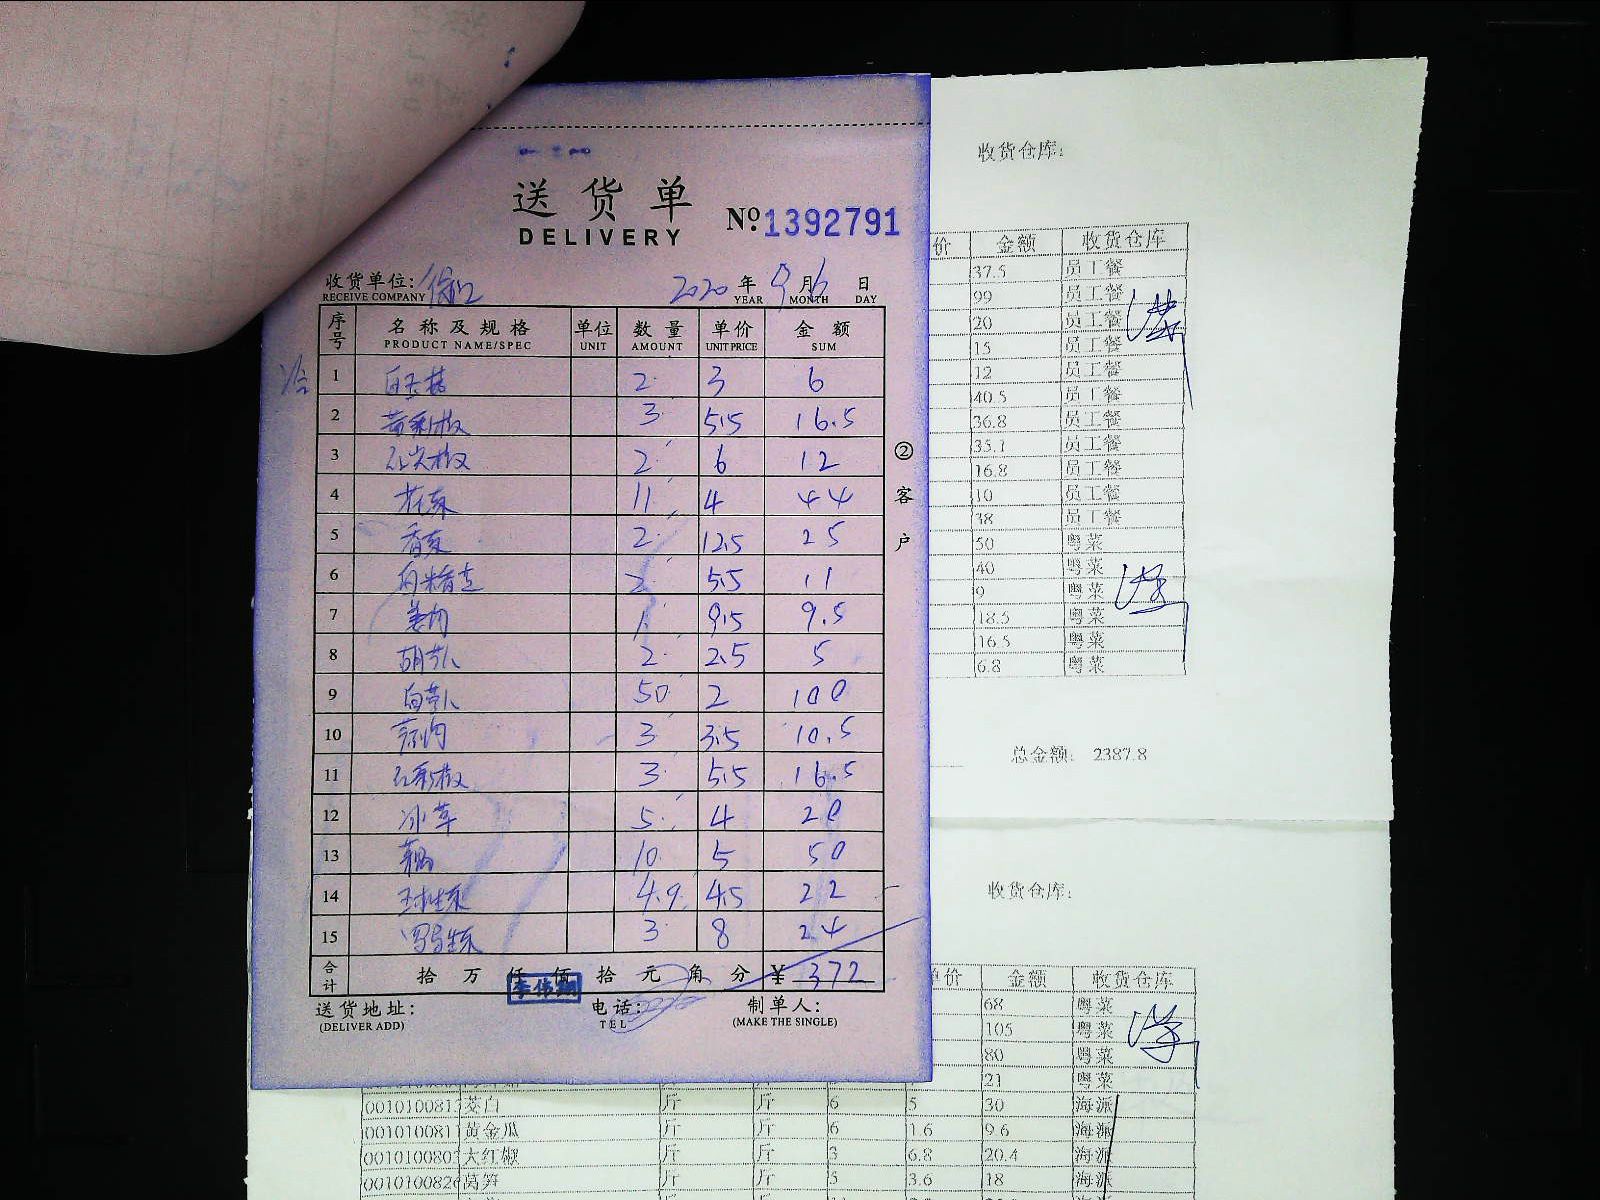 送货单
DELIVERY
№ 1392791
收货单位:
RECEIVE COMPANY
2020 年 9 月 6 日
YEAR MONTH DAY
序号 名称及规格 单位 数量 单价 金额
PRODUCT NAME/SPEC UNIT AMOUNT UNIT PRICE SUM
1 2 3 6
2 黄彩椒 3 5.5 16.5
3 红尖椒 2 6 12
4 花菜 11 4 44
5 香菜 2 12.5 25
6 2 5.5 11
7 姜肉 1 9.5 9.5
8 胡萝卜 2 2.5 5
9 白萝卜 50 2 100
10 3 3.5 10.5
11 红彩椒 3 5.5 16.5
12 冰草 5 4 20
13 藕 10 5 50
14 球生菜 4.9 4.5 22
15 罗马生菜 3 8 24
合计 拾 万 仟 佰 拾 元 角 分 ¥ 372
送货地址:
(DELIVER ADD)
电话:
TEL
制单人:
(MAKE THE SINGLE)
②客户
收货仓库:
价 金额 收货仓库
37.5 员工餐
99 员工餐
20 员工餐
15 员工餐
12 员工餐
40.5 员工餐
36.8 员工餐
35.1 员工餐
16.8 员工餐
10 员工餐
38 员工餐
50 粤菜
40 粤菜
9 粤菜
18.5 粤菜
16.5 粤菜
6.8 粤菜
总金额: 2387.8
收货仓库:
单价 金额 收货仓库
68 粤菜
105 粤菜
80 粤菜
21 粤菜
茭白 斤 斤 6 5 30 海派
黄金瓜 斤 斤 6 1.6 9.6 海派
大红椒 斤 斤 3 6.8 20.4 海派
莴笋 斤 斤 5 3.6 18 海派